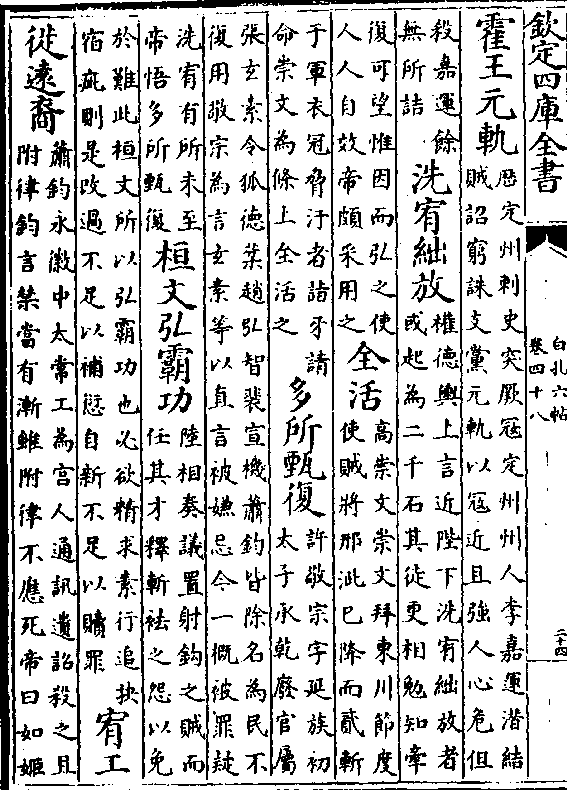 欽定四庫全書
白孔六帖
卷四十八
二十四
霍王元軌
歴定州刺史突厥冦定州州人李嘉運潜結
賊詔窮誅支黨元軌以冦近且強人心危但
殺嘉運餘
無所詰
洗宥絀放
權德輿上言近陛下洗宥絀放者
或起為二千石其徒更相勉知牽
復可望惟因而弘之使
人人自效帝頗采用之
全活
高崇文崇文拜東川節度
使賊將邢泚已降而貳斬
于軍衣冠脅汙者詣牙請
命崇文為條上全活之
多所甄復
許敬宗字延族初
太子承乾廢官屬
張玄素令狐德棻趙弘智裴宣機蕭鈞皆除名為民不
復用敬宗為言玄素等以直言被嫌忌今一概被罪疑
洗宥有所未至
帝悟多所甄復
桓文弘霸功
陸相奏議置射鈎之賊而
任其才釋斬袪之怨以免
於難此桓文所以弘霸功也必欲精求素行追抉
宿疵則是改過不足以補愆自新不足以贖罪
宥工
徙遠裔
蕭鈞永徽中太常工為宫人通訊遺詔殺之且
附律鈞言禁當有漸雖附律不應死帝曰如姬